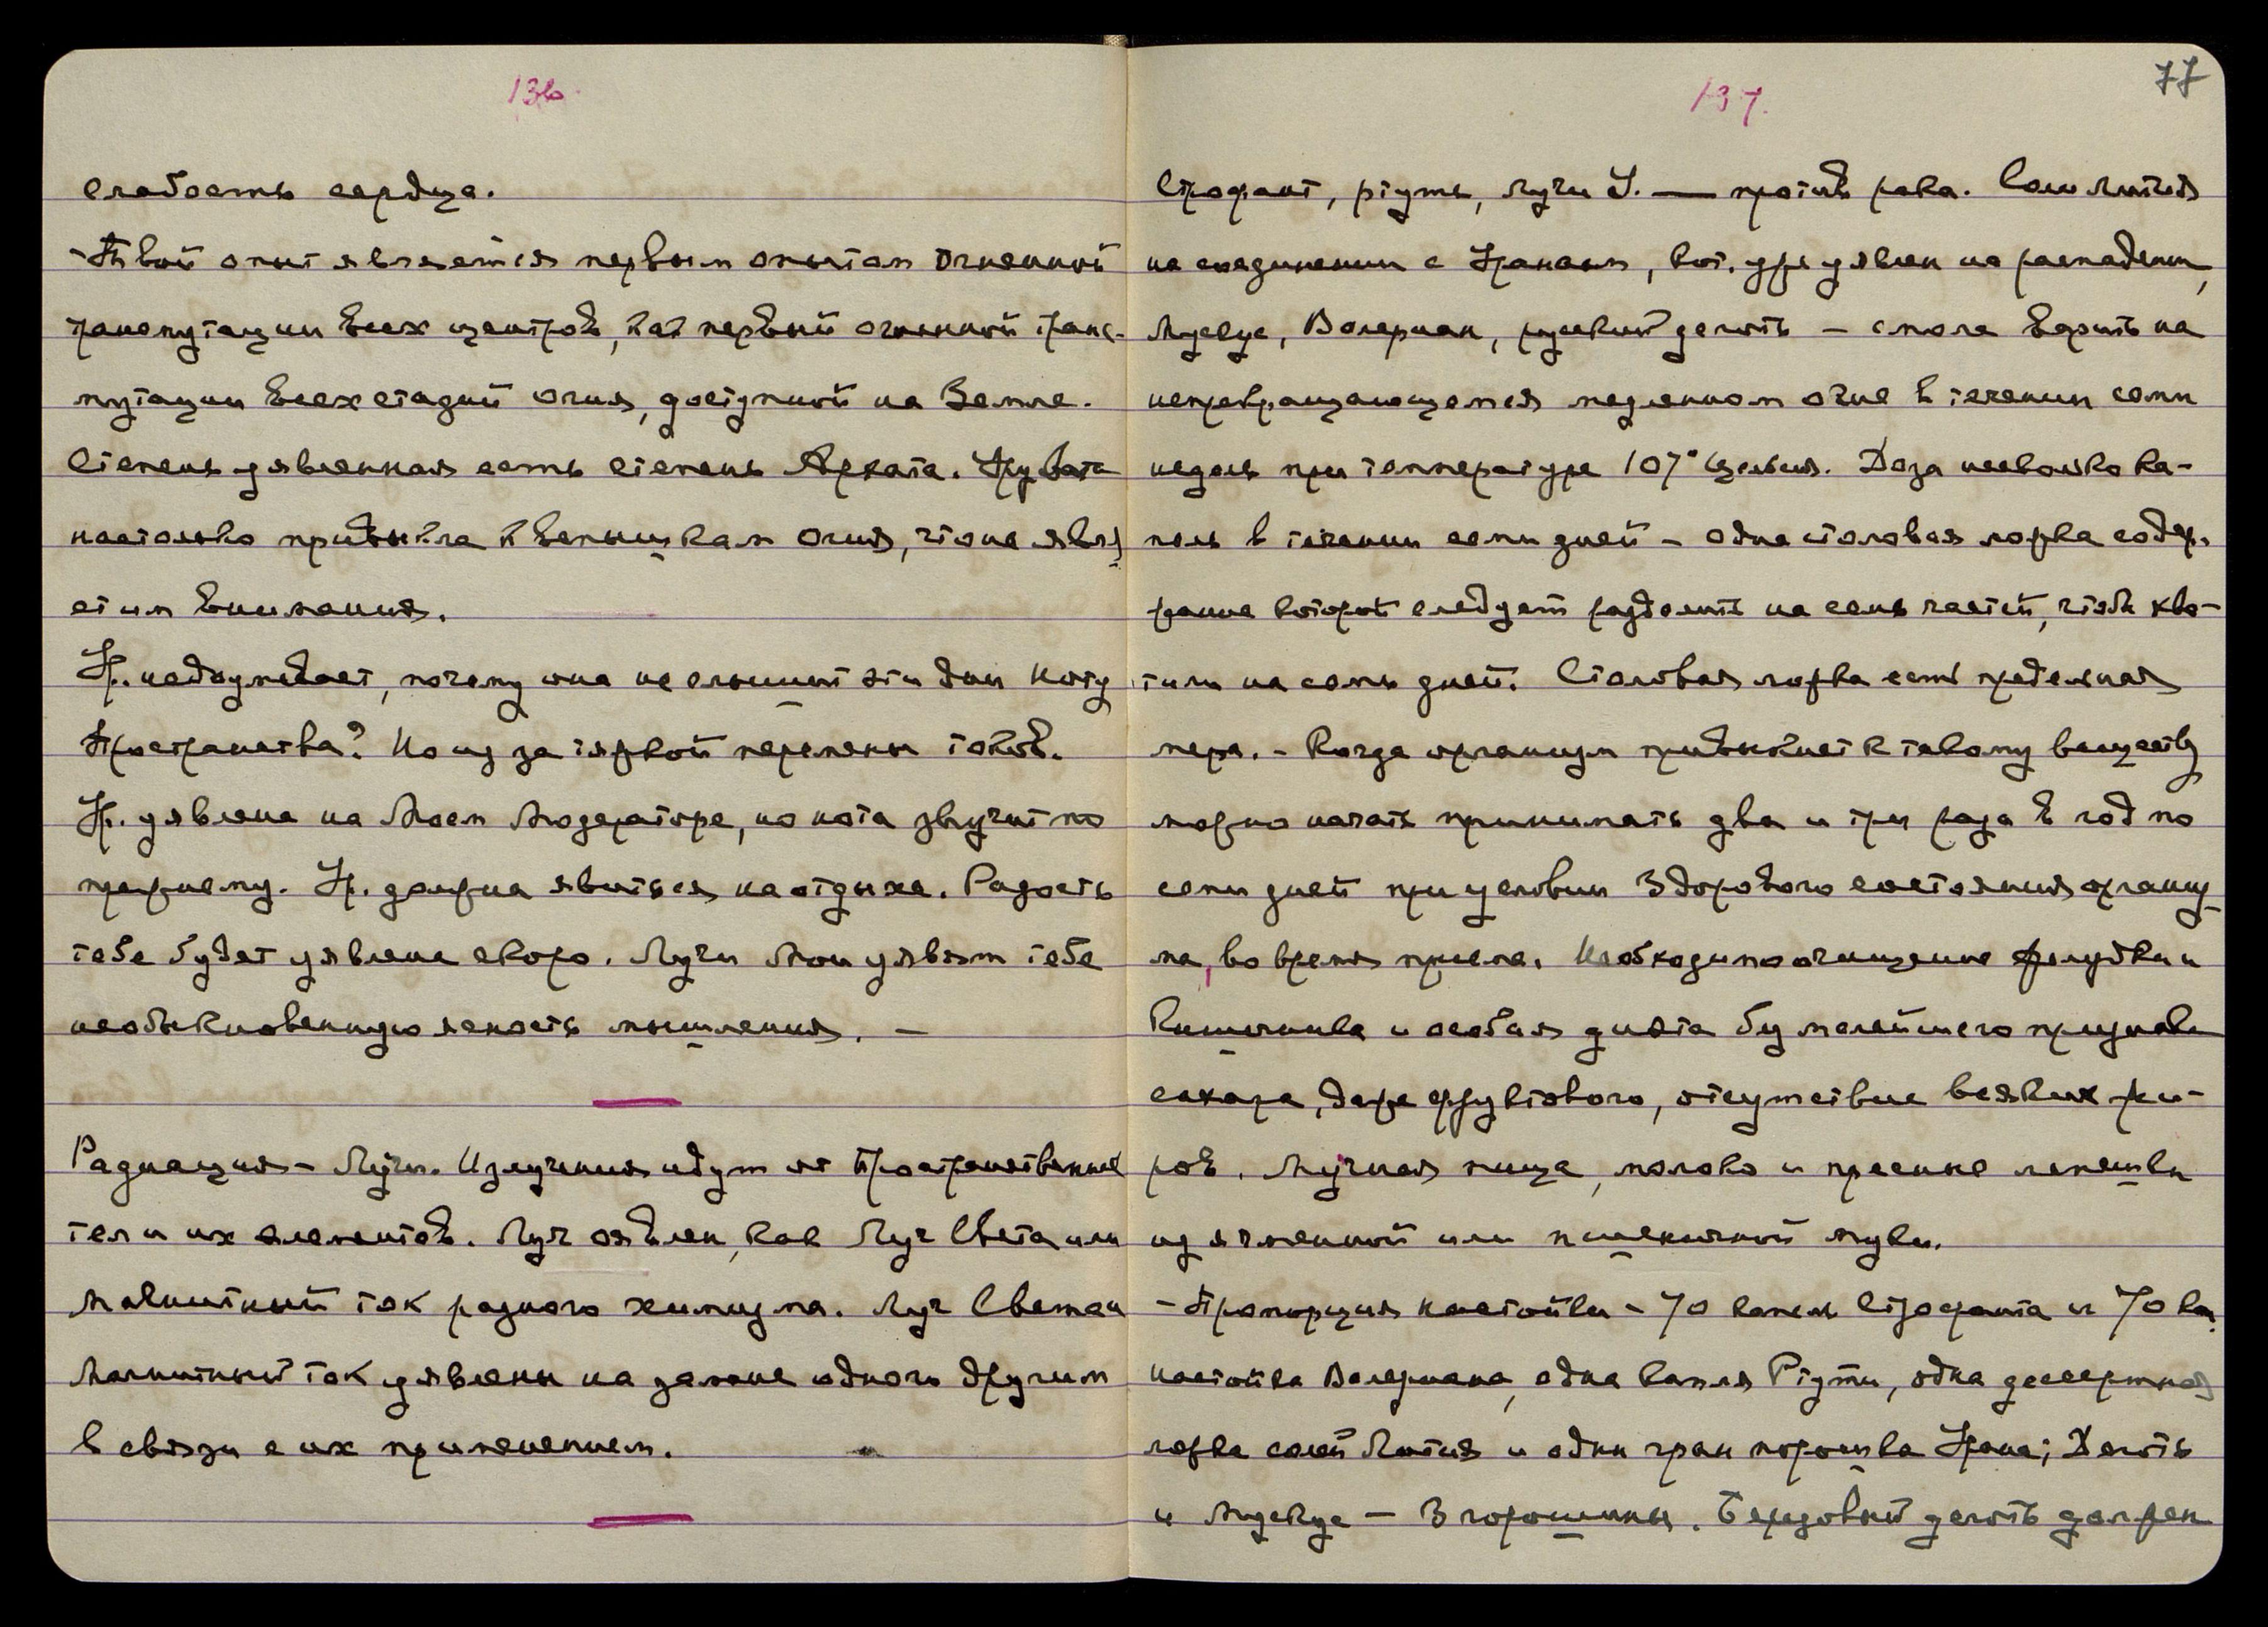 136.
слабость сердца.
- Твой опыт является первым опытом огненной
трансмутации всех центров, как первый огненной транс-
мутации всех стадий огня, достигнутой на Земле.
Степень уявленная есть степень Архата.
настолько привыкла к вспышкам огня, что не
им внимания.
Ур. недоумевает, почему она не слышит эти дни Ноту
Пространства? Но из за тяжкой перемены токов.
Ур. уявлена на Моем Модераторе, но нота звучит по
прежнему. Ур. должна явиться на отдыхе. Радость
тебе будет уявлена скоро. Лучи Мои уявят тебе
необыкновенную ясность мышления. —
Радиация - Лучи. Излучения идут от Пространственных
тел и их элементов. Луч оявлен, как Луч Света или
Магнитный ток разного химизма. Луч Света и
Магнитный ток уявлены на замене одного другим
в связи с их применением.
77
137.
Строфант, ртуть, лучи У. — против рака. Соли Лития
на соединении с Ураном, кот. уже уявлен на распадении,
Мускус, Валериан, русский деготь - смола варить на
непрекращающемся медленном огне в течении семи
недель при температуре 107° Цельсия. Доза несколько ка-
пель в течении семи дней - одна столовая ложка содер-
жание которой следует разделить на семь частей, чтобы хва-
тило на семь дней. Столовая ложка есть предельная
мера. - Когда организм привыкнет к такому веществу
можно начать принимать два и три раза в год по
семи дней при условии здорового состояния организ-
ма, во время приема. Необходимо очищение желудка и
Кишечника и особая диэта без малейшего признака
сахара, даже фруктового, отсутствие всяких жи-
ров. Мучная пища, молоко и пресные лепешки
из ячменной или пшеничной муки.
- Пропорция настойки - 70 капель Строфанта и 70 кап.
настойка Валериана, одна капля Ртути, одна десертная
ложка солей Лития и один гран порошка Урана; Деготь
и Мускус - 3 горошины. Березовый деготь должен